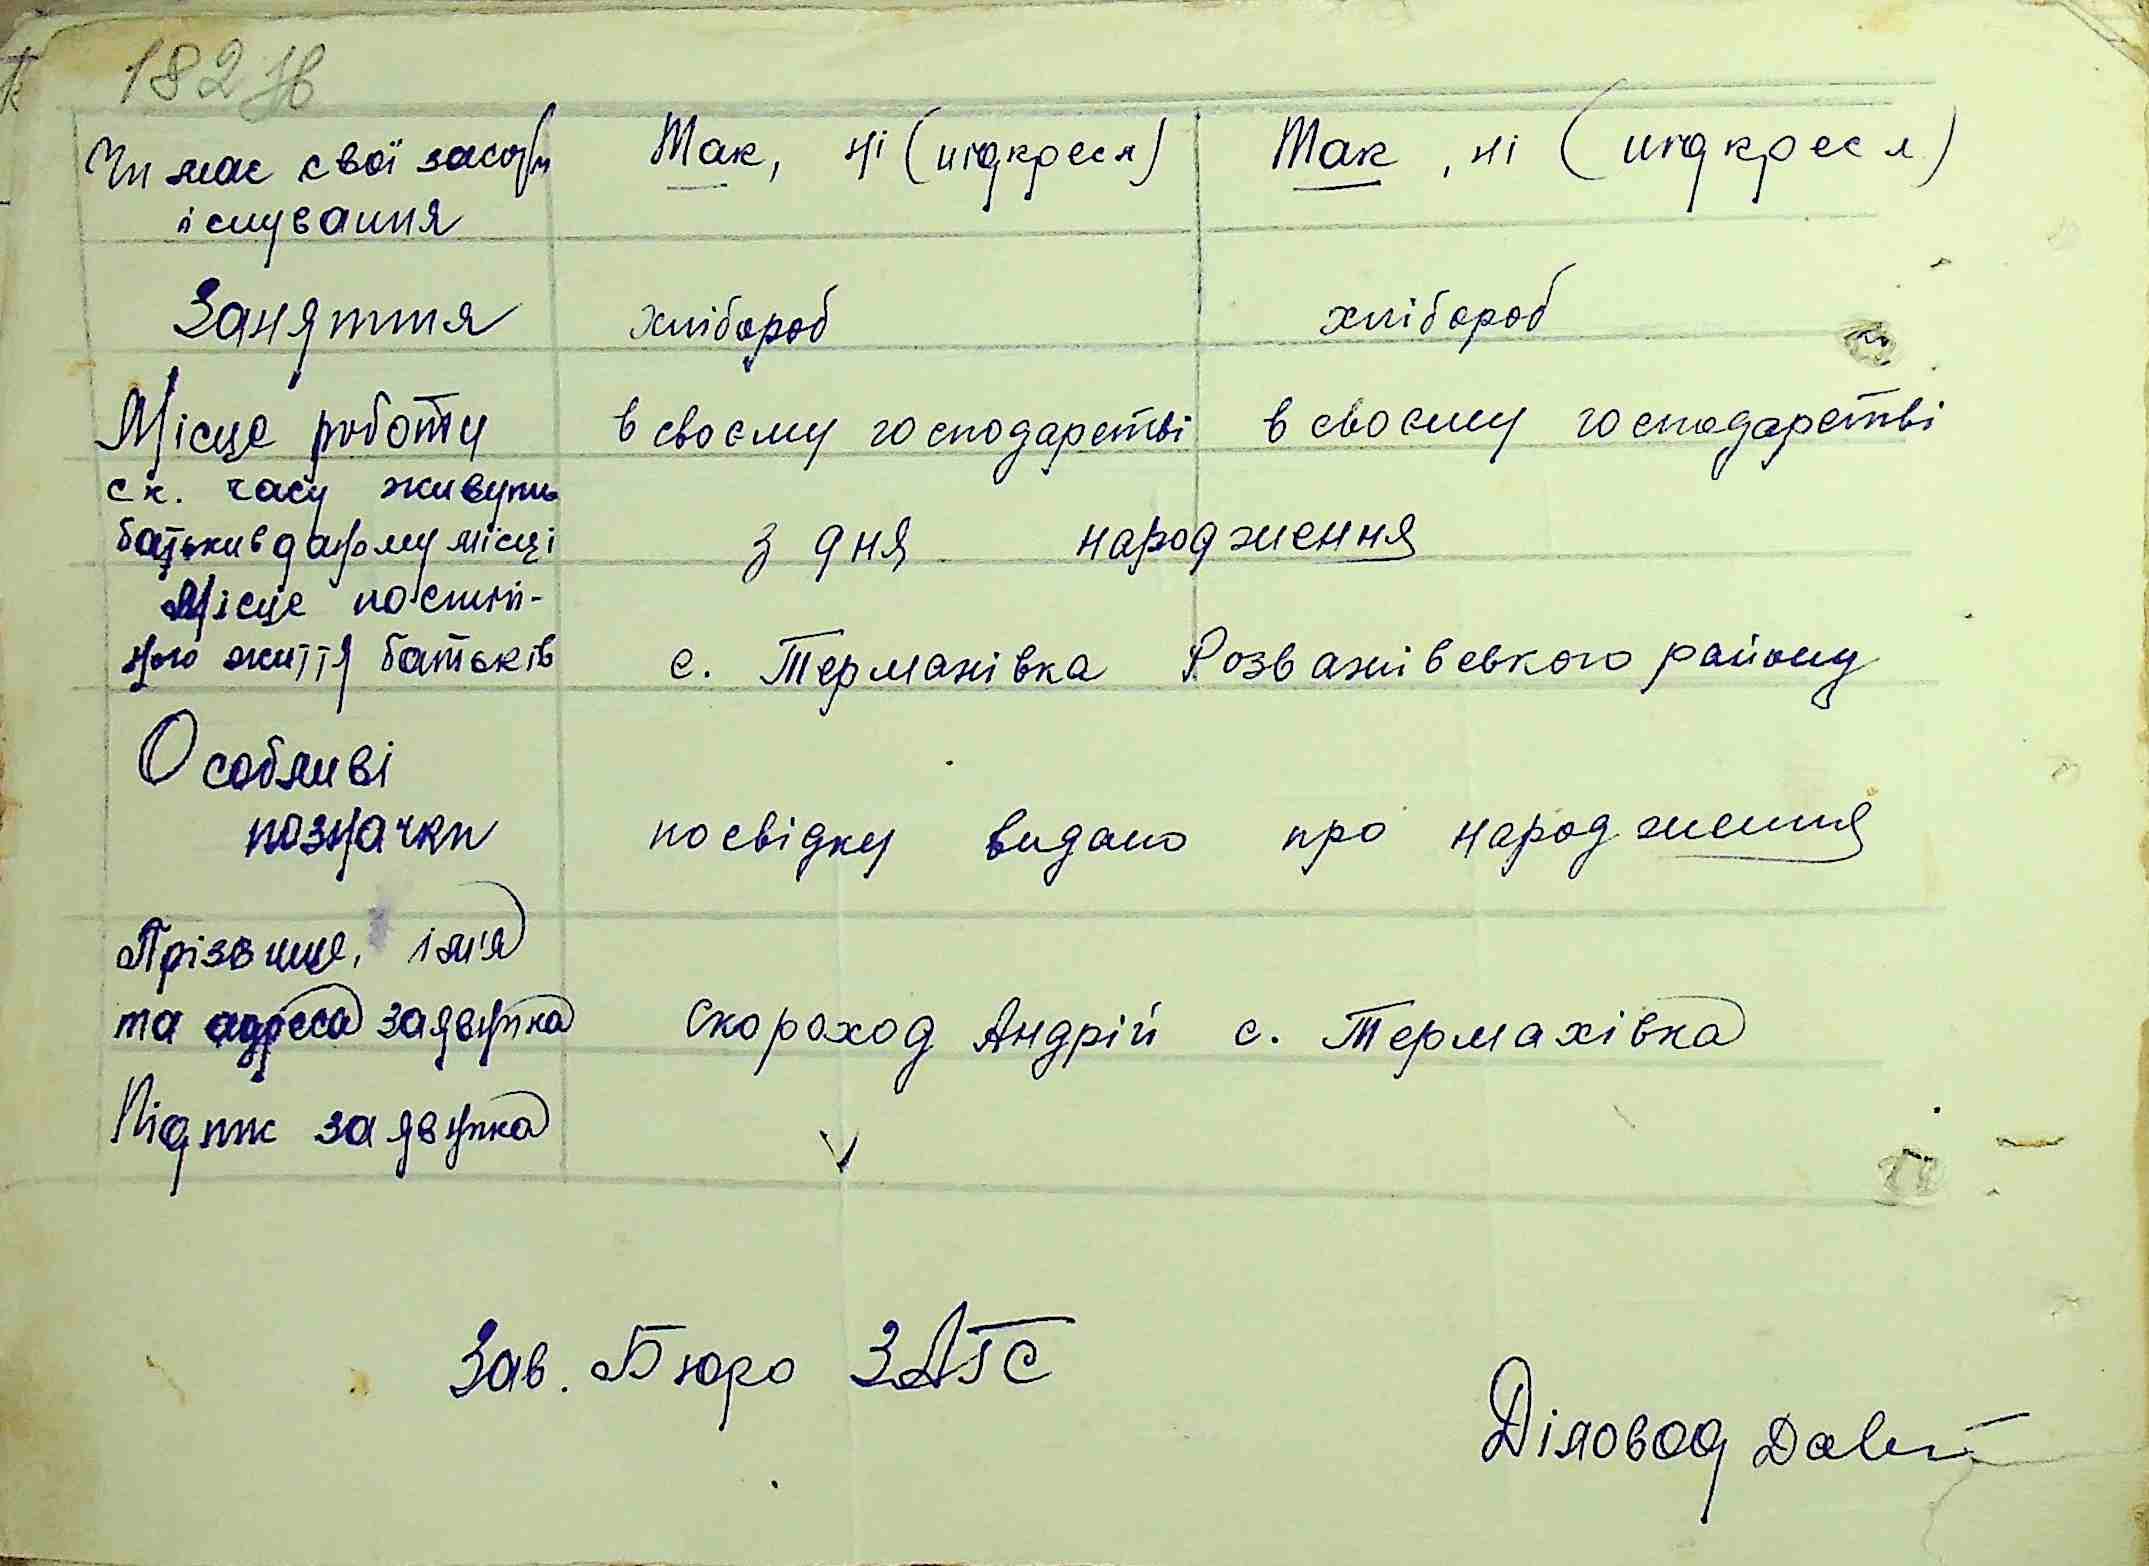 182
Чи має свої засоби Так, ні (підкресл) Так, ні (підкресл)
існування
Заняття хлібороб хлібороб
Місце роботи в своєму господарстві в своєму господарстві
ск. часу живуть
батьки в даному місці з дня народження
Місце постій-
ного життя батьків с. Термахівка Розважівського району
Особливі
позначки посвідку видано про народження
Прізвище, ім'я
та адреса заявника Скороход Андрій с. Термахівка
Підпис заявника V
Зав. Бюро ЗАГС
Діловод